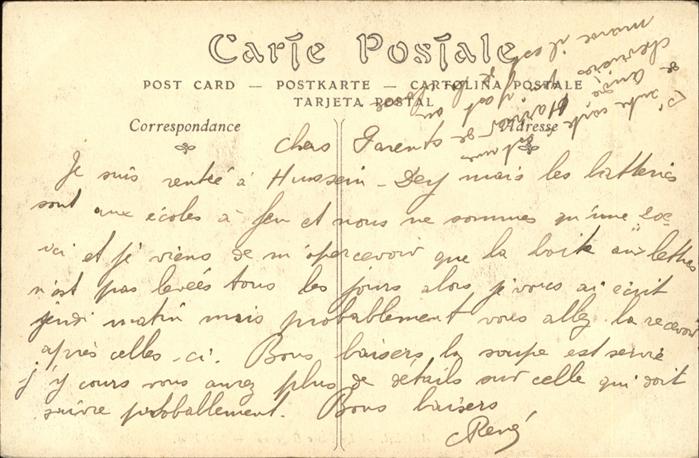 Carte Postale
POST CARD — POSTKARTE — CARTOLINA POSTALE
TARJETA POSTAL
Correspondance
Adresse
Chers Parents
Je suis rentré à Hussein-Dey mais les batteries
sont aux écoles à feu et nous ne sommes qu'une
ici et je viens de m'apercevoir que la boite aux lettres
n'est pas levées tous les jours alors je vous ai écrit
jeudi matin mais probablement vous allez la recevoir
après celles-ci. Bons baisers la soupe est servie
j'y cours vous aurez plus de détails sur celle qui doit
suivre probablement. Bons baisers
René